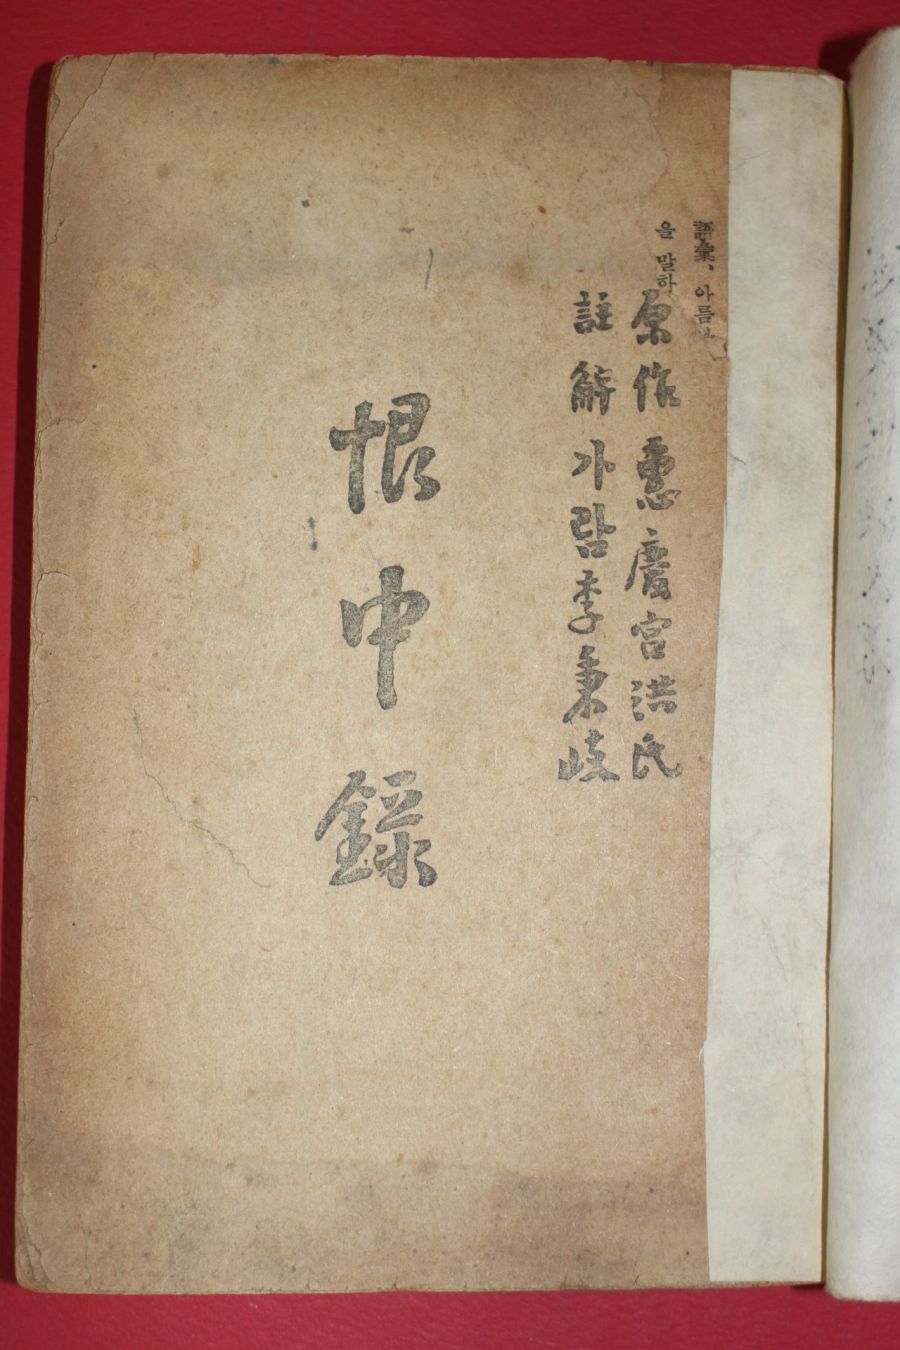 語彙、아름
을 말하
原作 惠慶宮洪氏
註解 가람李秉岐
恨中録